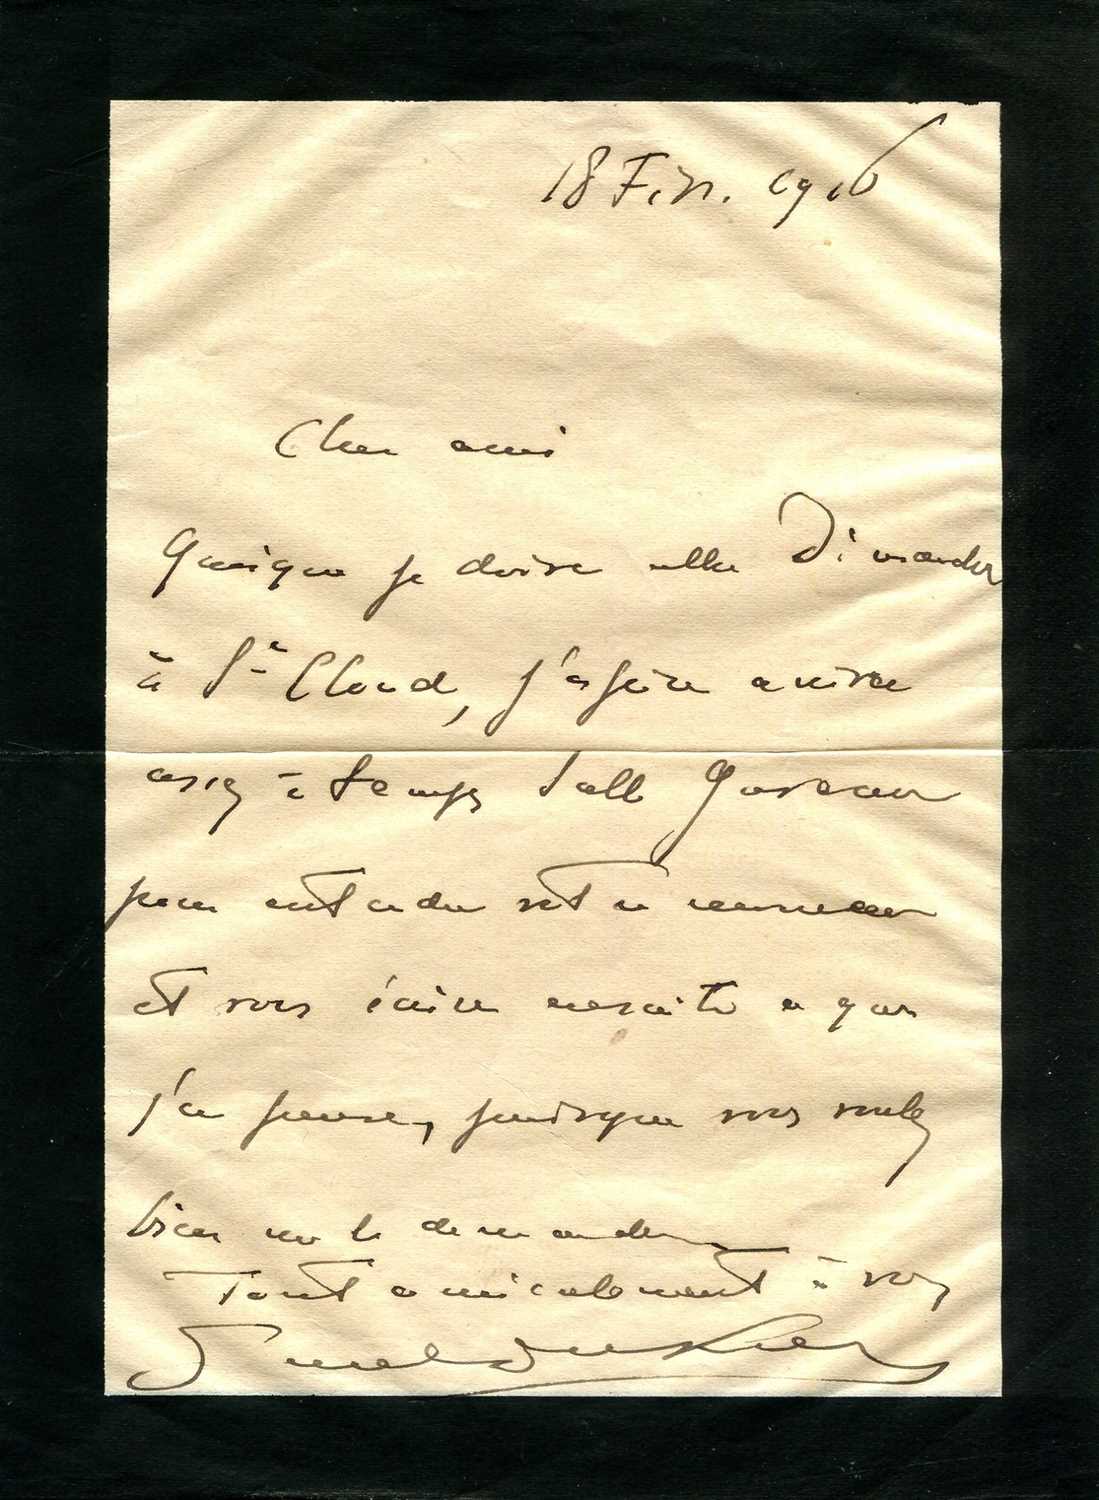 18 Fév. 1916
Cher ami
Quoique je doive aller Dimanche
à St Cloud, j'espère arriver
assez à temps Salle Gaveau
pour entendre votre morceau
et vous écrire ensuite ce que
j'en pense, puisque vous voulez
bien me le demander
Tout amicalement à vous
Paul Dukas